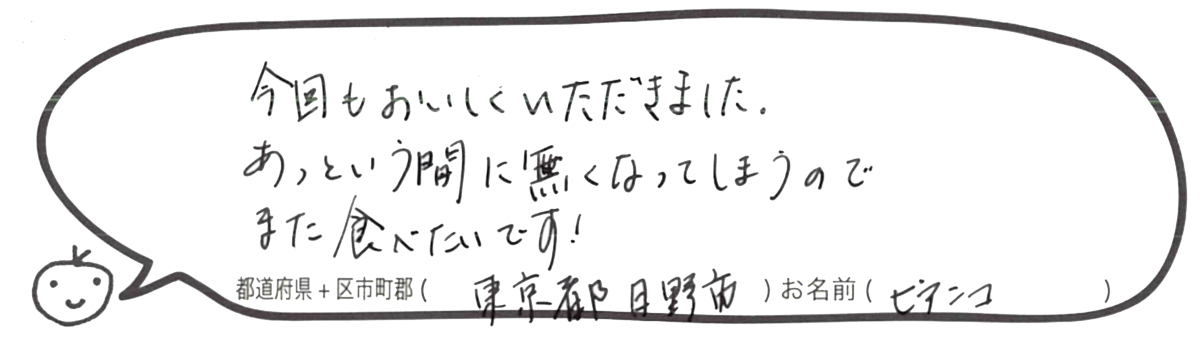 今回もおいしくいただきました.
あっという間に無くなってしまうので
また食べたいです!
都道府県+区市町郡( 東京都日野市 )お名前( ビアンコ )